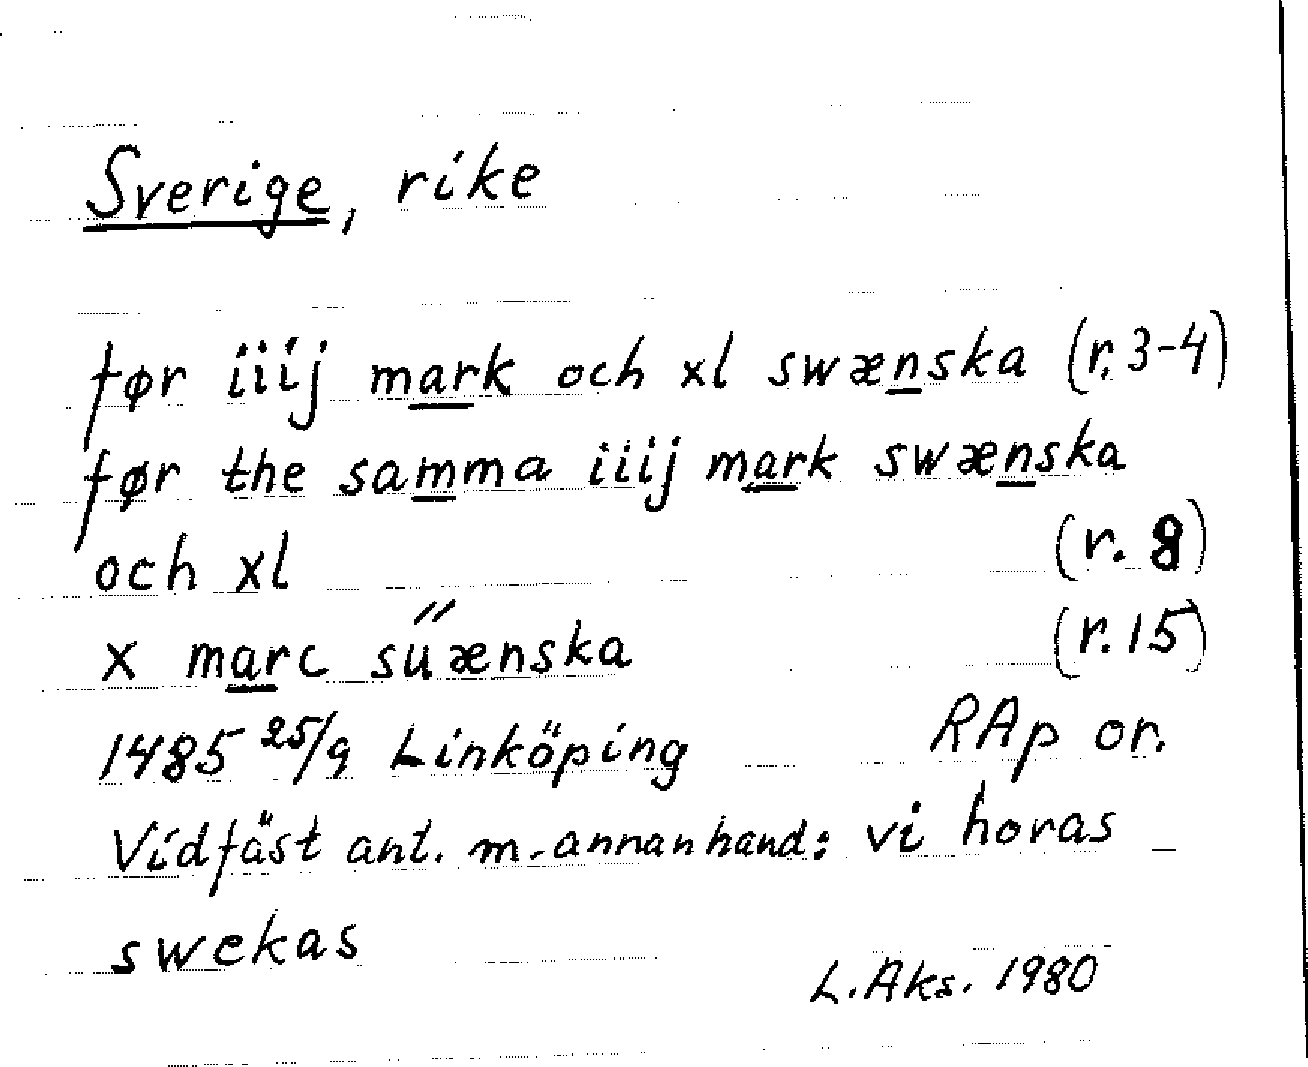 Sverige, rike
før iiij mark och xl swænska (r. 3-4)
før the samma iiij mark swænska
och xl (r. 8)
x marc sűænska (r. 15)
1485 25/9 Linköping RAp or.
Vidfäst ant. m. annan hand: vi horas
swekas
L. Aks. 1980